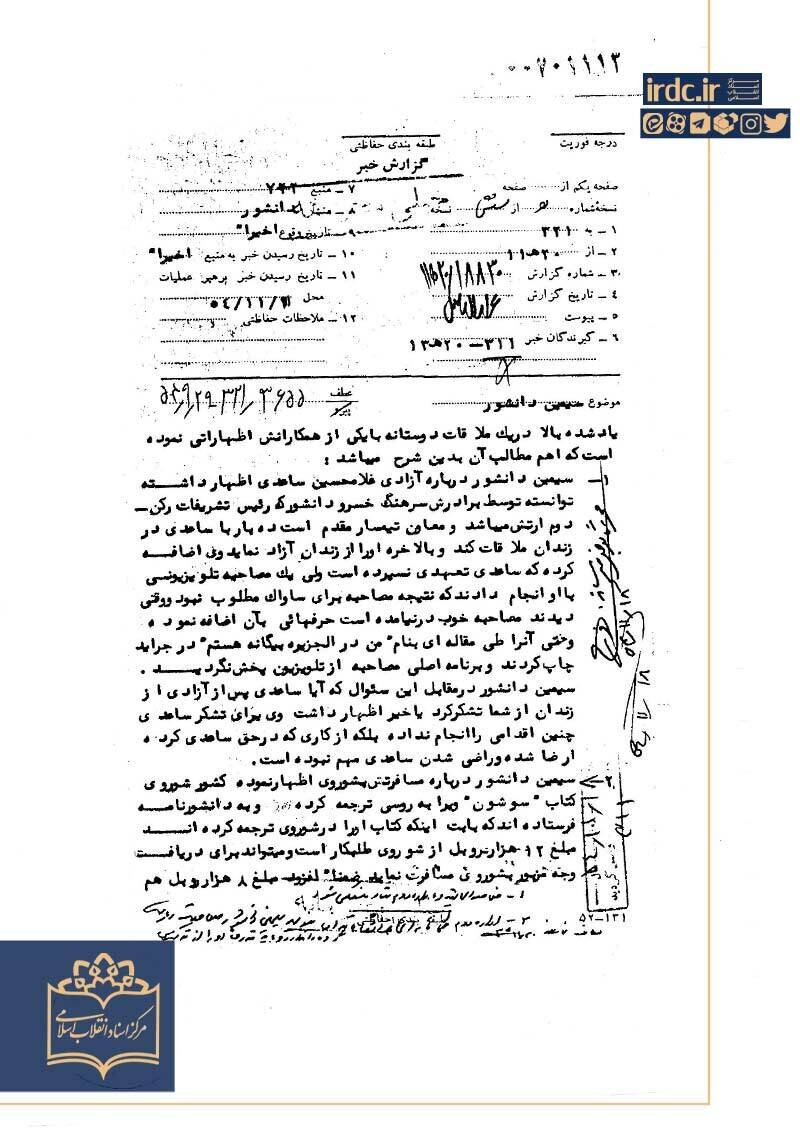 ۰۰۷۰۹۱۱۳
irdc.ir
مرکز اسناد انقلاب اسلامی
درجه فوریت
طبقه بندی حفاظتی
گزارش خبر
صفحه یکم از صفحه
نسخه شماره از نسخه
۱ - به ۳۲۱
۲ - از ۲۰هـ۱۱
۳ - شماره گزارش
۴ - تاریخ گزارش
۵ - پیوست
۶ - گیرندگان خبر ۳۱۱-۲۰هـ۱۲
۷ - منبع
۸ - منشاء دانشور
۹ - تاریخ وقوع اخیرا"
۱۰ - تاریخ رسیدن خبر به منبع اخیرا"
۱۱ - تاریخ رسیدن خبر برهبر عملیات
محل
۱۲ - ملاحظات حفاظتی
موضوع سیمین دانشور
عطف
پیرو
یادشده بالا دریك ملاقات دوستانه بایکی از همکارانش اظهاراتی نموده
است که اهم مطالب آن بدین شرح میباشد :
۱- سیمین دانشور درباره آزادی غلامحسین ساعدی اظهار داشته
توانسته توسط برادرش سرهنگ خسرو دانشورکه رئیس تشریفات رکن-
دوم ارتش میباشد و معاون تیمسار مقدم است ده بار با ساعدی در
زندان ملاقات کند و بالاخره اورا از زندان آزاد نماید وی اضافه
کرده که ساعدی تعهدی نسپرده است ولی یك مصاحبه تلویزیونسی
با او انجام دادند که نتیجه مصاحبه برای ساواك مطلوب نبود ووقتی
دیدند مصاحبه خوب درنیامده است حرفهائی بآن اضافه نموده
وحتی آنرا طی مقاله ای بنام" من در الجزیره بیگانه هستم" در جراید
چاپ کردند و برنامه اصلی مصاحبه از تلویزیون پخش نگردیـــد .
سیمین دانشور درمقابل این سئوال که آیا ساعدی پس از آزادی از
زندان از شما تشکر کرد یا خیر اظهار داشت وی برای تشکر ساعدی
چنین اقدامی را انجام نداده بلکه از کاری که درحق ساعدی کرده
ارضا شده وراضی شدن ساعدی مهم نبوده است.
۲- سیمین دانشور درباره مسافرتش بشوروی اظهار نموده کشور شوروی
کتاب "سوشون" ویرا به روسی ترجمه کرده و به دانشور نامه
فرستاده اند که بابت اینکه کتاب اورا درشوروی ترجمه کرده انـــد
مبلغ ۱۲ هزار روبل از شوروی طلبکار است و میتواند برای دریافت
وجه مزبور بشوروی مسافرت نماید ضمنا" افزود مبلغ ۸ هزار روبل هم
طبقه بندی حفاظتی
۵۲-۱۳۱
مرکز اسناد انقلاب اسلامی